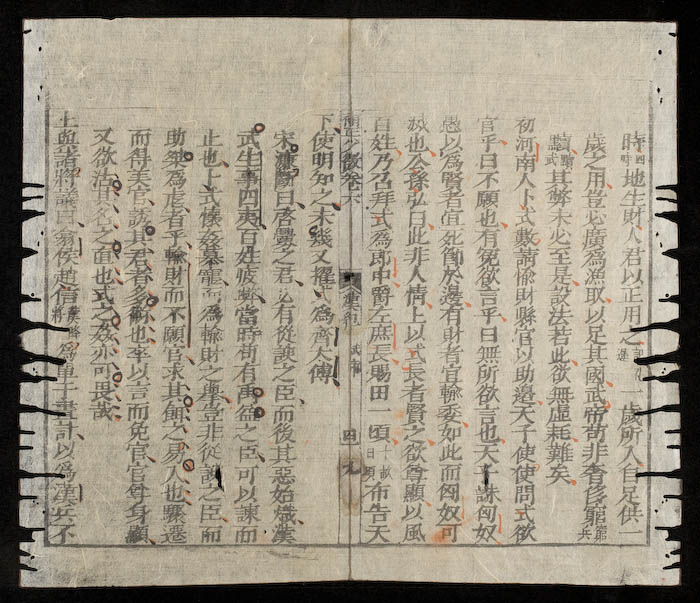 時四時地生財人君以正用之一歲所入自足供一
歲之用豈必廣爲漁取以足其國武帝苟非奢侈窮兵
黷武其弊未必至是設法若此欲無虛耗難矣
初河南人卜式數請輸財縣官以助邊天子使使問式欲
官乎曰不願也有冤欲言乎曰無所欲言也天子誅匈奴
愚以爲賢者宜死節於邊有財者宜輸委如此而匈奴可
滅也公孫弘曰此非人情上以式長者賢之欲尊顯以風
百姓乃召拜式爲郎中爵左庶長賜田十頃布告天
卷六
下使明知之未幾又擢式爲齊太傅
宋濂斷曰啓釁之君必有從諛之臣而後其惡始熾漢
武生事四夷百姓疲弊當時苟有直臣可以諫而
止也卜式懷姦慕寵而爲輸財之舉豈非從諛之臣而
助桀爲虐者乎輸財而不願官求其餌之易人也驟遷
而得美官誤其君者多也卒以言而免官官與身顯
又欲沽其名之直也式之姦亦可畏哉
上與諸將議曰翕侯趙信爲單于畫計以爲漢兵不